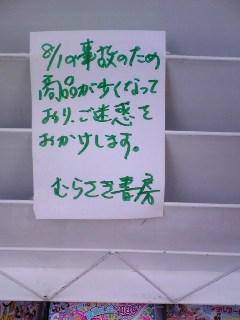 8/1の事故のため
商品が少くなって
おり、ご迷惑を
おかけします。
むらさき書房